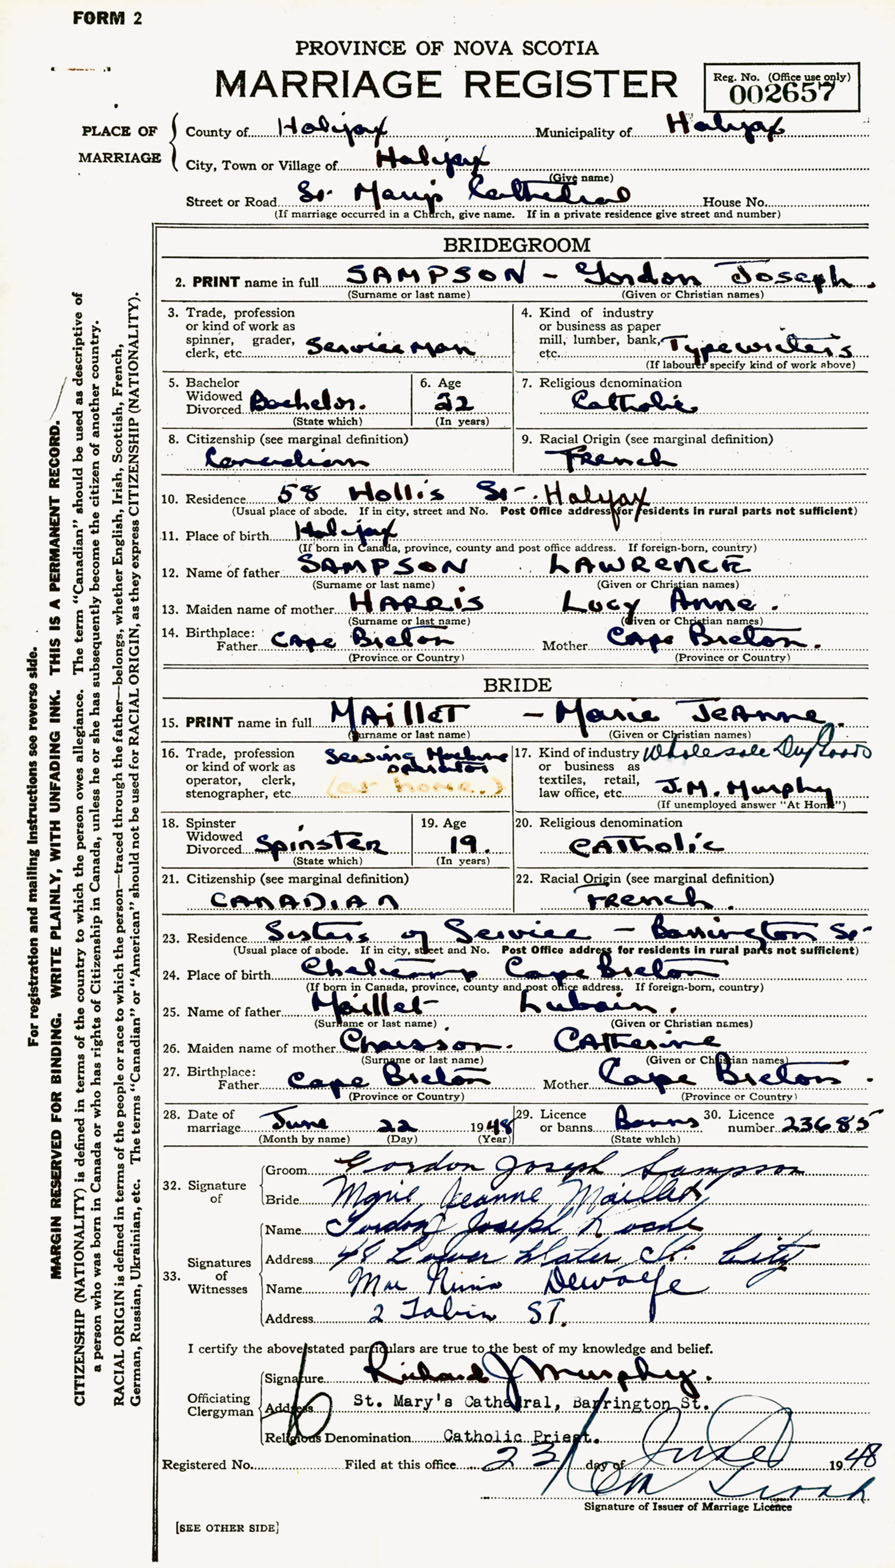 FORM 2
PROVINCE OF NOVA SCOTIA
MARRIAGE REGISTER
Reg. No. (Office use only)
002657
PLACE OF MARRIAGE
County of Halifax Municipality of Halifax
City, Town or Village of Halifax
(Give name)
Street or Road St. Mary's Cathedral House No.
(If marriage occurred in a Church, give name. If in a private residence give street and number)
BRIDEGROOM
2. PRINT name in full SAMPSON - Gordon Joseph.
(Surname or last name) (Given or Christian names)
3. Trade, profession or kind of work as spinner, grader, clerk, etc. Serviceman
4. Kind of industry or business as paper mill, lumber, bank, etc. Typewriters
(If labourer specify kind of work above)
5. Bachelor Widowed Divorced Bachelor.
(State which)
6. Age 22
(In years)
7. Religious denomination Catholic
8. Citizenship (see marginal definition)
Canadian
9. Racial Origin (see marginal definition)
French
10. Residence 58 Hollis St. Halifax
(Usual place of abode. If in city, street and No. Post Office address for residents in rural parts not sufficient)
11. Place of birth Halifax
(If born in Canada, province, county and post office address. If foreign-born, country)
12. Name of father SAMPSON LAWRENCE
(Surname or last name) (Given or Christian names)
13. Maiden name of mother HARRIS Lucy Anne.
(Surname or last name) (Given or Christian names)
14. Birthplace: Father Cape Breton Mother Cape Breton.
(Province or Country) (Province or Country)
BRIDE
15. PRINT name in full MAILLET - Marie JeAnne.
(Surname or last name) (Given or Christian names)
16. Trade, profession or kind of work as operator, clerk, stenographer, etc. Sewing Machine operator
(at home.)
17. Kind of industry or business as textiles, retail, law office, etc. Wholesale Dry Goods
J.M. Murphy
(If unemployed answer "At Home")
18. Spinster Widowed Divorced Spinster
(State which)
19. Age 19.
(In years)
20. Religious denomination
CATholic
21. Citizenship (see marginal definition)
CANADIAN
22. Racial Origin (see marginal definition)
French.
23. Residence Sisters of Service - Barrington St.
(Usual place of abode. If in city, street and No. Post Office address for residents in rural parts not sufficient)
24. Place of birth Cheticamp Cape Breton
(If born in Canada, province, county and post office address. If foreign-born, country)
25. Name of father Maillet Lubain.
(Surname or last name) (Given or Christian names)
26. Maiden name of mother Chaisson. CATherine
(Surname or last name) (Given or Christian names)
27. Birthplace: Father Cape Breton Mother Cape Breton.
(Province or Country) (Province or Country)
28. Date of marriage June 22 1948
(Month by name) (Day) (Year)
29. Licence or banns Banns
(State which)
30. Licence number 23685
32. Signature of
Groom Gordon Joseph Sampson
Bride Marie Jeanne Maillet
33. Signatures of Witnesses
Name Gordon Joseph Roche
Address 48 Lower Water St. City
Name Mrs Dewolfe
Address 2 Tobin ST.
I certify the above stated particulars are true to the best of my knowledge and belief.
Officiating Clergyman
Signature Richard J Murphy.
Address St. Mary's Cathedral, Barrington St.
Religious Denomination Catholic Priest.
Registered No. Filed at this office 23 day of June 1948
Signature of Issuer of Marriage Licence
[SEE OTHER SIDE]
For registration and mailing instructions see reverse side.
MARGIN RESERVED FOR BINDING. WRITE PLAINLY, WITH UNFADING INK. THIS IS A PERMANENT RECORD.
CITIZENSHIP (NATIONALITY) is defined in terms of the country to which the person owes allegiance. The term "Canadian" should be used as descriptive of
a person who was born in Canada or who has rights of Citizenship in Canada, unless he or she has subsequently become the citizen of another country.
RACIAL ORIGIN is defined in terms of the people or race to which the person—traced through the father—belongs, whether English, Irish, Scottish, French,
German, Russian, Ukrainian, etc. The terms "Canadian" or "American" should not be used for RACIAL ORIGIN, as they express CITIZENSHIP (NATIONALITY).